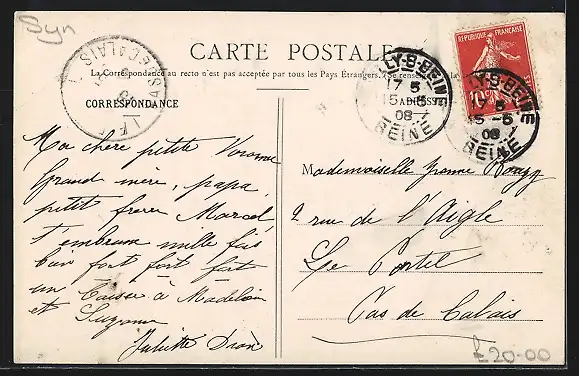 Syn
CARTE POSTALE
La Correspondance au recto n'est pas acceptée par tous les Pays Etrangers. (Se rense
CORRESPONDANCE
ADRESSE
REPUBLIQUE FRANÇAISE
10
17 5
15 -5
08
SEINE
17 5
15 -5
08
SEINE
PAS DE CALAIS
LE
Ma chère petite Yvonne
Grand mère, papa
petit frère Marcel
t'embrasse mille fois
bien fort fort fort
un baiser à Madeleine
et Suzanne
Juliette
Mademoiselle Yvonne
2 rue de l'Aigle
Le Portel
Pas de Calais
£20-00